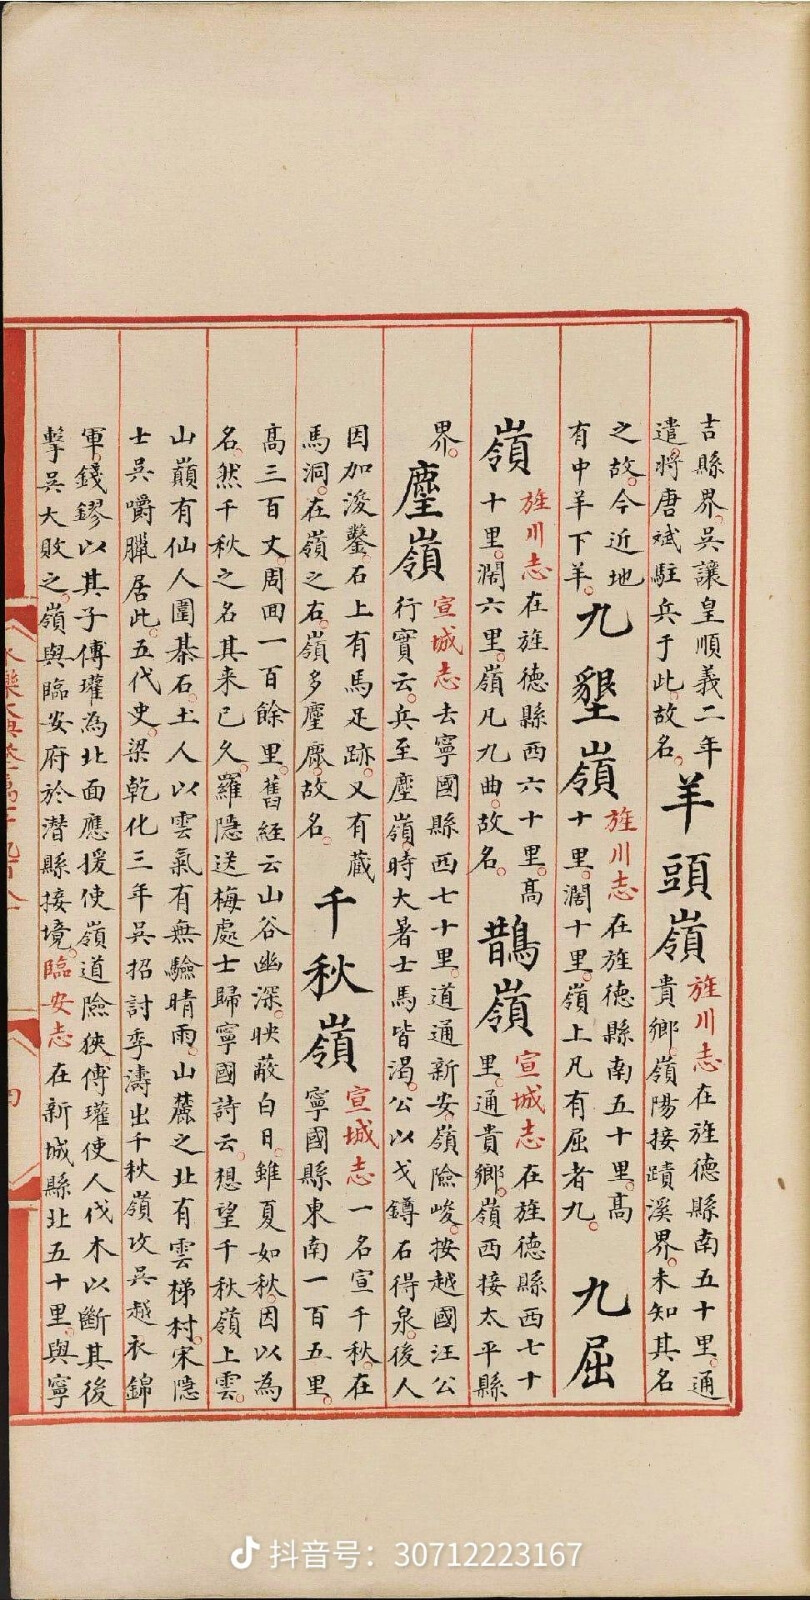 吉縣界。吳讓皇順義二年
遣將唐斌駐兵于此。故名。
羊頭嶺
旌川志在旌德縣南五十里。通
貴鄉。嶺陽接蹟溪界。未知其名
之故。今近地
有中羊下羊。
九墾嶺
旌川志在旌德縣南五十里。高
十里。濶十里。嶺上凡有屈者九。
九屈
嶺
旌川志在旌德縣西六十里。高
十里。濶六里。嶺凡九曲。故名。
鵲嶺
宣城志在旌德縣西七十
里。通貴鄉。嶺西接太平縣
界。
麈嶺
宣城志去寧國縣西七十里。道通新安。嶺險峻。按越國汪公
行實云。兵至麈嶺。時大暑士馬皆渴。公以戈鐏石得泉。後人
因加浚鑿。石上有馬足跡。又有藏
馬洞。在嶺之右。嶺多麈麃。故名。
千秋嶺
宣城志一名宣千秋。在
寧國縣東南一百五里。
高三百丈。周回一百餘里。舊經云山谷幽深。映蔽白日。雖夏如秋。因以為
名。然千秋之名其来已久。羅隱送梅處士歸寧國詩云。想望千秋嶺上雲。
山巔有仙人圍棊石。土人以雲氣有無驗晴雨。山麓之北有雲梯村。宋隱
士吳嚼臘居此。五代史。梁乾化三年吳招討李濤出千秋嶺攻吳越衣錦
軍。錢鏐以其子傳瓘為北面應援使嶺道險狹。傳瓘使人伐木以斷其後
擊吳大敗之。嶺與臨安府於潛縣接境。臨安志在新城縣北五十里。與寧
抖音号：30712223167